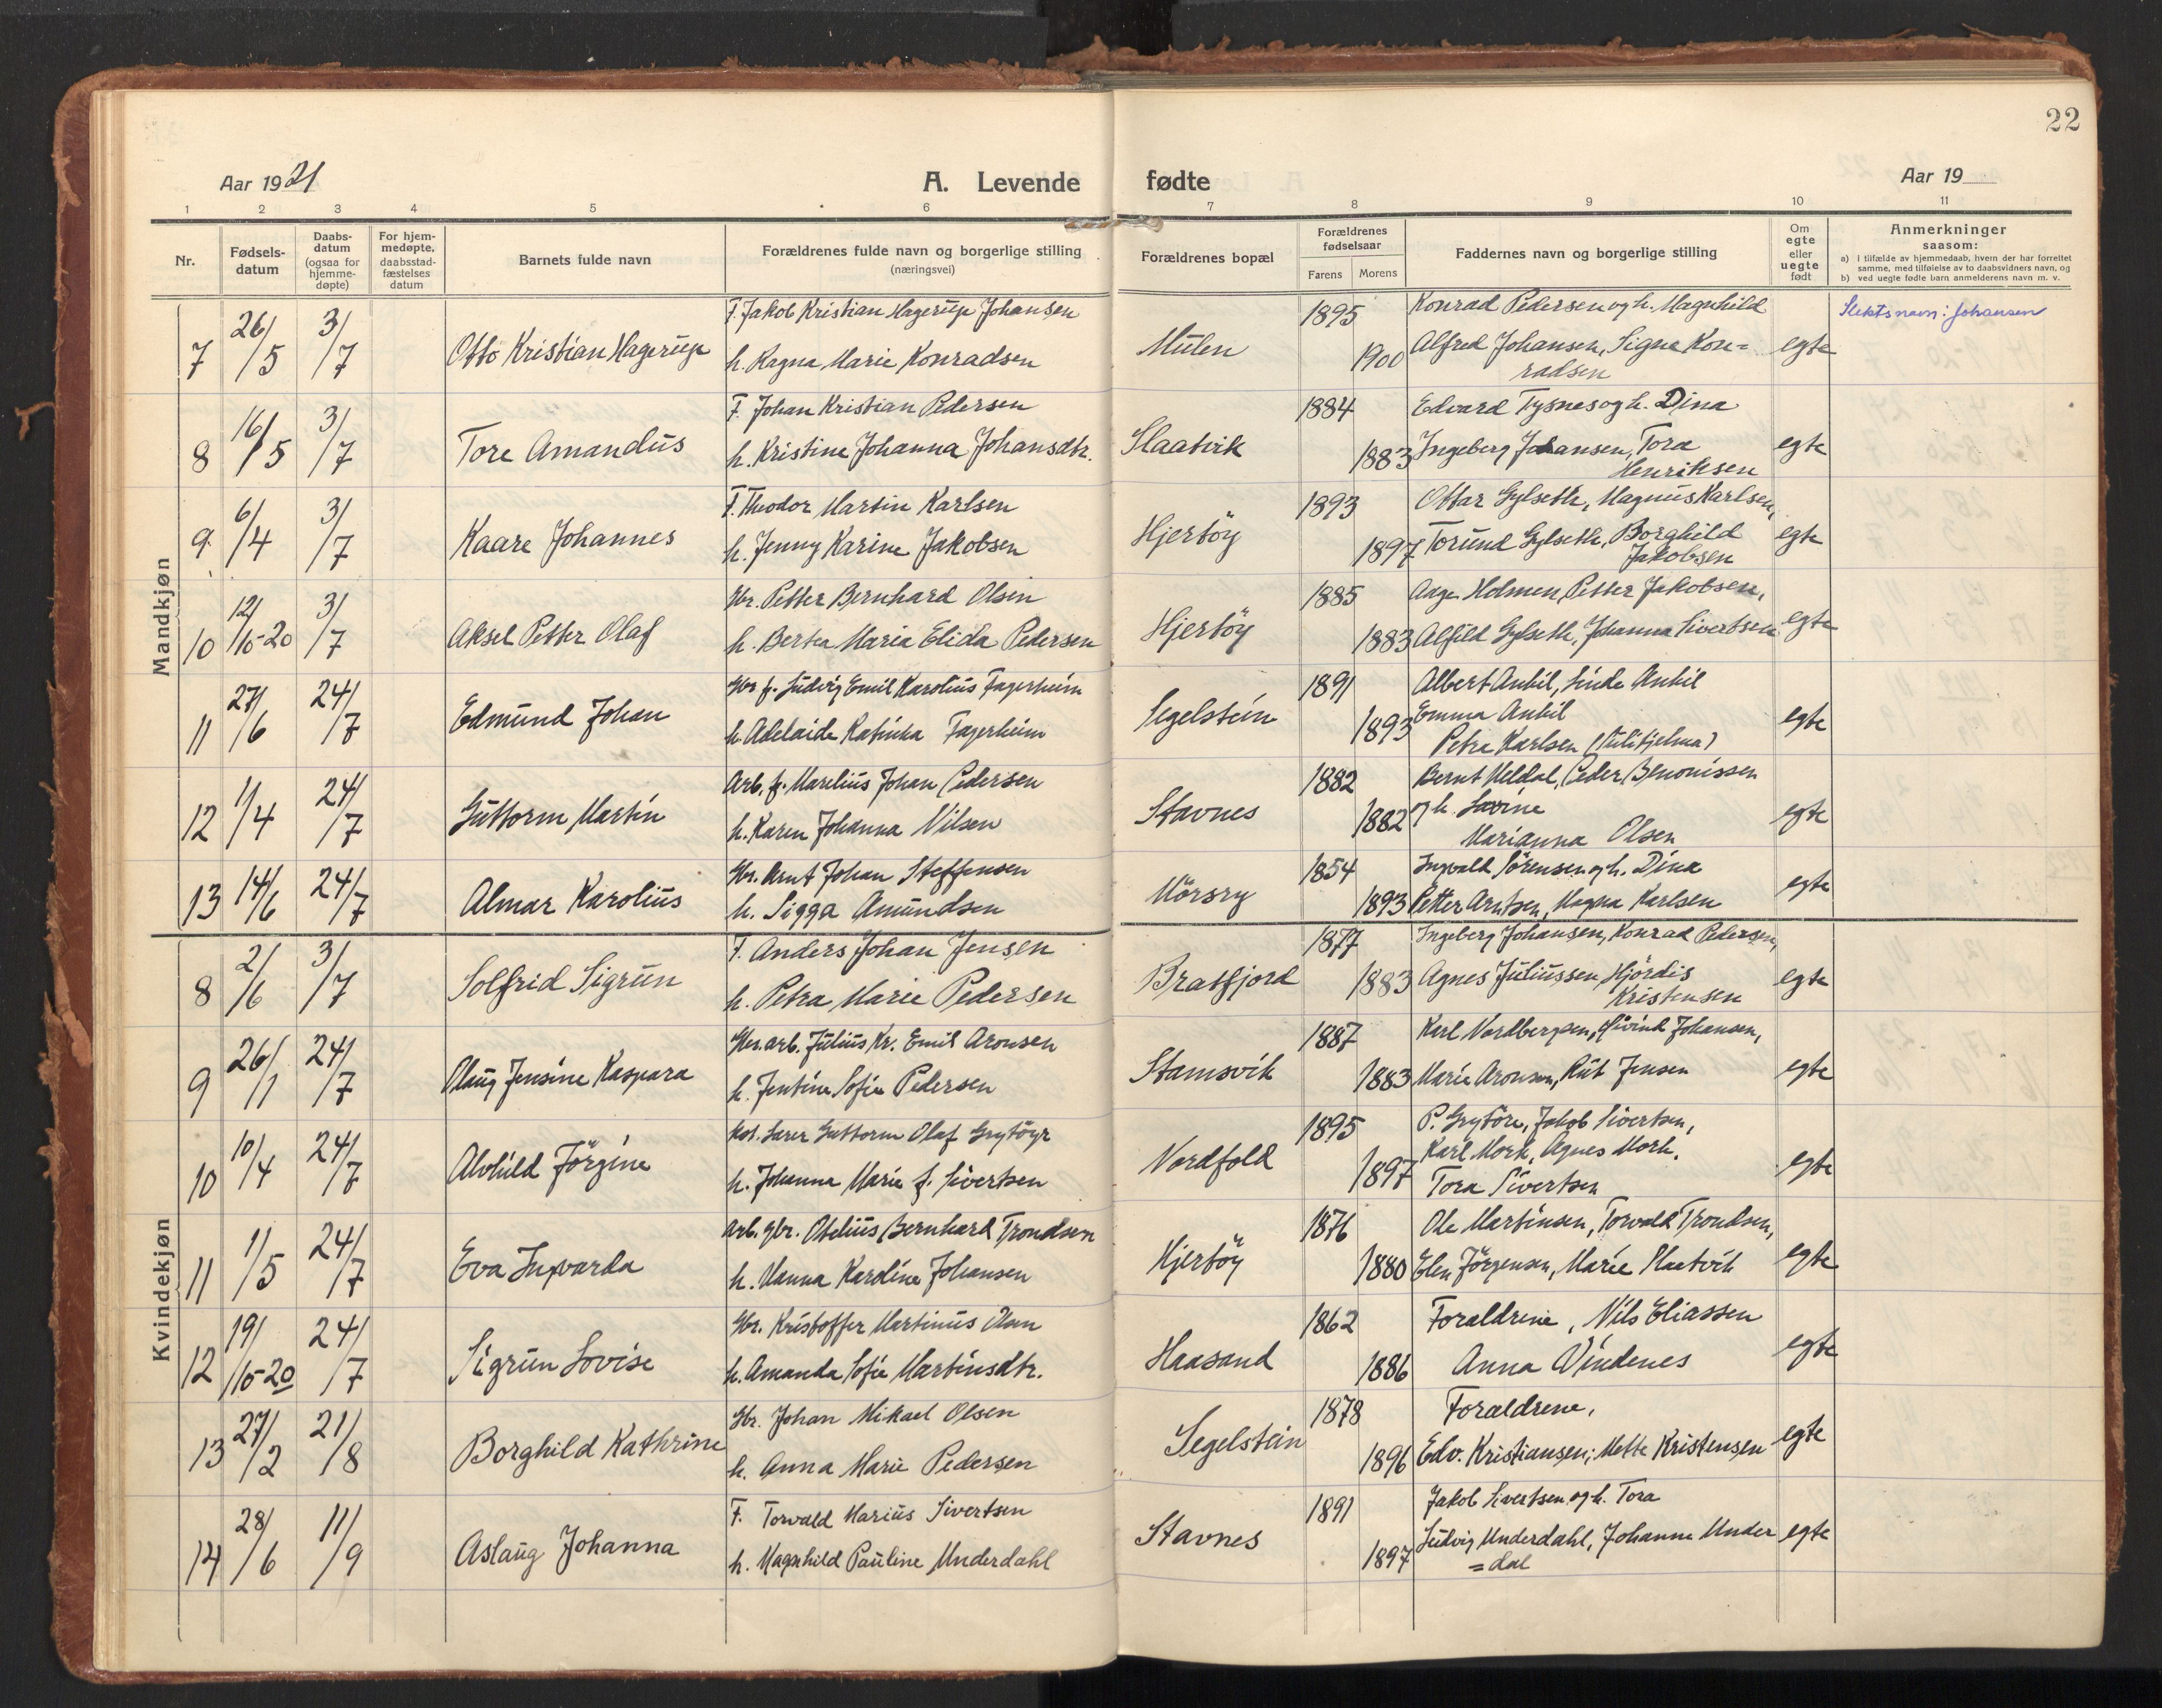 22
Aar 1921 A. Levende fødte Aar 19
1 2 3 4 5 6 7 8 9 10 11
Nr. Fødselsdatum Daabsdatum (ogsaa for hjemmedøpte) For hjemmedøpte, daabsstadfæstelses datum Barnets fulde navn Forældrenes fulde navn og borgerlige stilling (næringsvei) Forældrenes bopæl Forældrenes fødselsaar Farens Morens Faddernes navn og borgerlige stilling Om egte eller uegte født Anmerkninger saasom:
a) i tilfælde av hjemmedaab, hvem der har forrettet samme, med tilføielse av to daabsvidners navn, og
b) ved uegte fødte barn anmelderens navn m. v.
Mandkjøn
7 26/5 3/7 Otto Kristian Hagerup F. Jakob Kristian Hagerup Johansen Mulen 1895 Konrad Pedersen og h. Magnhild egte Slektsnavn: Johansen
h. Ragna Marie Konradsen 1900 Alfred Johansen, Signe Kon=
radsen
8 16/5 3/7 Tore Amandus F. Johan Kristian Pedersen Slaatvik 1884 Edvard Tysnes og h. Dina egte
h. Kristine Johanna Johansdtr. 1883 Ingeberg Johansen, Tora
Henriksen
9 6/4 3/7 Kaare Johannes F. Theodor Martin Karlsen Hjertöy 1893 Ottar Gylseth, Magnus Karlsen, egte
h. Jenny Karine Jakobsen 1897 Torund Gylseth, Borghild
Jakobsen
10 12/10-20 3/7 Aksel Petter Olaf Gbr. Petter Bernhard Olsen Hjertöy 1885 Aage Holmen, Petter Jakobsen, egte
h. Berta Maria Elida Pedersen 1883 Alfild Gylseth, Johanna Sivertsen
11 27/6 24/7 Edmund Johan Gbr. f. Ludvig Emil Karolius Fagerheim Segelstein 1891 Albert Ankil, Linde Ankil egte
h. Adelaide Katinka Fagerheim 1893 Emma Ankil
Petra Karlsen (Sulitjelma)
12 1/4 24/7 Guttorm Martin Arb. f. Marelius Johan Pedersen Stavnes 1882 Bernt Meldal, Peder Benonissen egte
h. Karen Johanna Nilsen 1882 og h. Lovine
Marianna Olsen
13 14/6 24/7 Almar Karolius Gbr. Arnt Johan Steffensen Mörsry 1854 Ingvald Sörensen og h. Dina egte
h. Sigga Amundsen 1893 Petter Arntsen, Magna Karlsen
Kvindekjøn
8 2/6 3/7 Solfrid Sigrun F. Anders Johan Jensen Bratfjord 1877 Ingeberg Johansen, Konrad Pedersen, egte
h. Petra Marie Pedersen 1883 Agnes Juliussen, Hjördis
Kristensen
9 26/1 24/7 Olaug Jensine Kaspara Gbr. arb. Julius Kr. Emil Aronsen Stamsvik 1887 Karl Nordbergsen, Eivind Johansen, egte
h. Jentine Sofie Pedersen 1883 Marie Aronsen, Rut Jensen
10 10/4 24/7 Alvhild Jörgine Guttorm Olaf Grytöyr Nordfold 1895 P. Grytöre, Jakob Sivertsen, egte
h. Johanna Marie f. Sivertsen 1897 Karl Mork, Agnes Mork,
Tora Sivertsen
11 1/5 24/7 Eva Ingvarda Arb. gbr. Otelius Bernhard Trondsen Hjertöy 1876 Ole Martinsen, Torvald Trondsen, egte
h. Hanna Karoline Johansen 1880 Elen Jörgensen, Marie Slaatvik
12 19/10-20 24/7 Sigrun Lovise Gbr. Kristoffer Martinus Olsen Haasand 1862 Foraldrene, Nils Eliassen egte
h. Amanda Sofie Martinsdtr. 1886 Anna Vindenes
13 27/2 21/8 Borghild Kathrine Gbr. Johan Mikael Olsen Segelstein 1878 Foraldrene, egte
h. Anna Marie Pedersen 1896 Edv. Kristiansen; Mette Kristensen
14 28/6 11/9 Aslaug Johanna F. Torvald Marius Sivertsen Stavnes 1891 Jakob Sivertsen og h. Tora egte
h. Magnhild Pauline Underdahl 1897 Ludvig Underdahl, Johanne Under
=dal